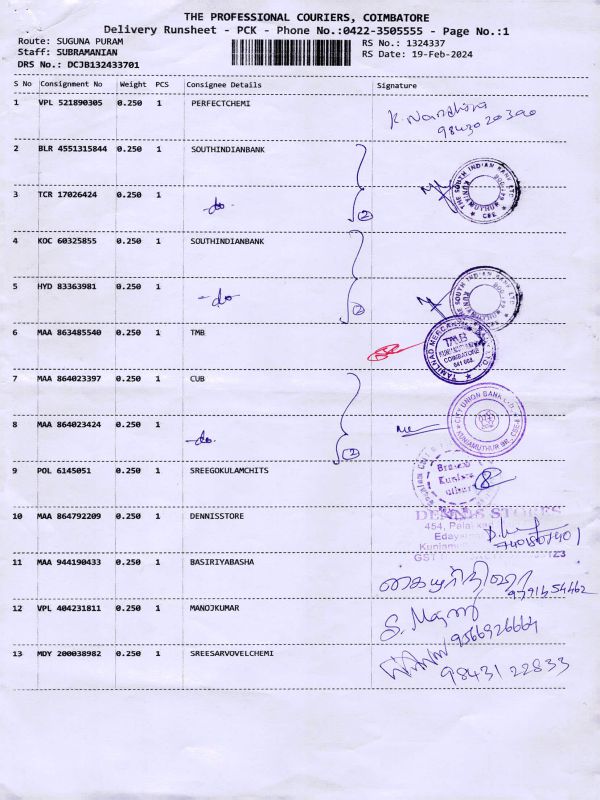 THE PROFESSIONAL COURIERS, COIMBATORE
Delivery Runsheet - PCK - Phone No.:0422-3505555 - Page No.:1
Route: SUGUNA PURAM RS No.: 1324337
Staff: SUBRAMANIAN RS Date: 19-Feb-2024
DRS No.: DCJB132433701
S No Consignment No Weight PCS Consignee Details Signature
1 VPL 521890305 0.250 1 PERFECTCHEMI
9843020300
2 BLR 4551315844 0.250 1 SOUTHINDIANBANK
3 TCR 17026424 0.250 1 -do- 2
THE SOUTH INDIAN BANK LTD KUNIAMUTHUR CBE
4 KOC 60325855 0.250 1 SOUTHINDIANBANK
5 HYD 83363981 0.250 1 -do 2
SOUTH INDIAN BANK LTD
6 MAA 863485540 0.250 1 TMB
TAMILNAD MERCANTILE BANK LTD. TMB COIMBATORE
7 MAA 864023397 0.250 1 CUB
CITY UNION BANK LTD. KUNIAMUTHUR BR. CBE
8 MAA 864023424 0.250 1 -do. 2
9 POL 6145051 0.250 1 SREEGOKULAMCHITS
Branch
10 MAA 864792209 0.250 1 DENNISSTORE
DENNIS STORES
454,
GST 123
11 MAA 944190433 0.250 1 BASIRIYABASHA
9791454462
12 VPL 404231811 0.250 1 MANOJKUMAR
9566926664
13 MDY 200038982 0.250 1 SREESARVOVELCHEMI
9843122833